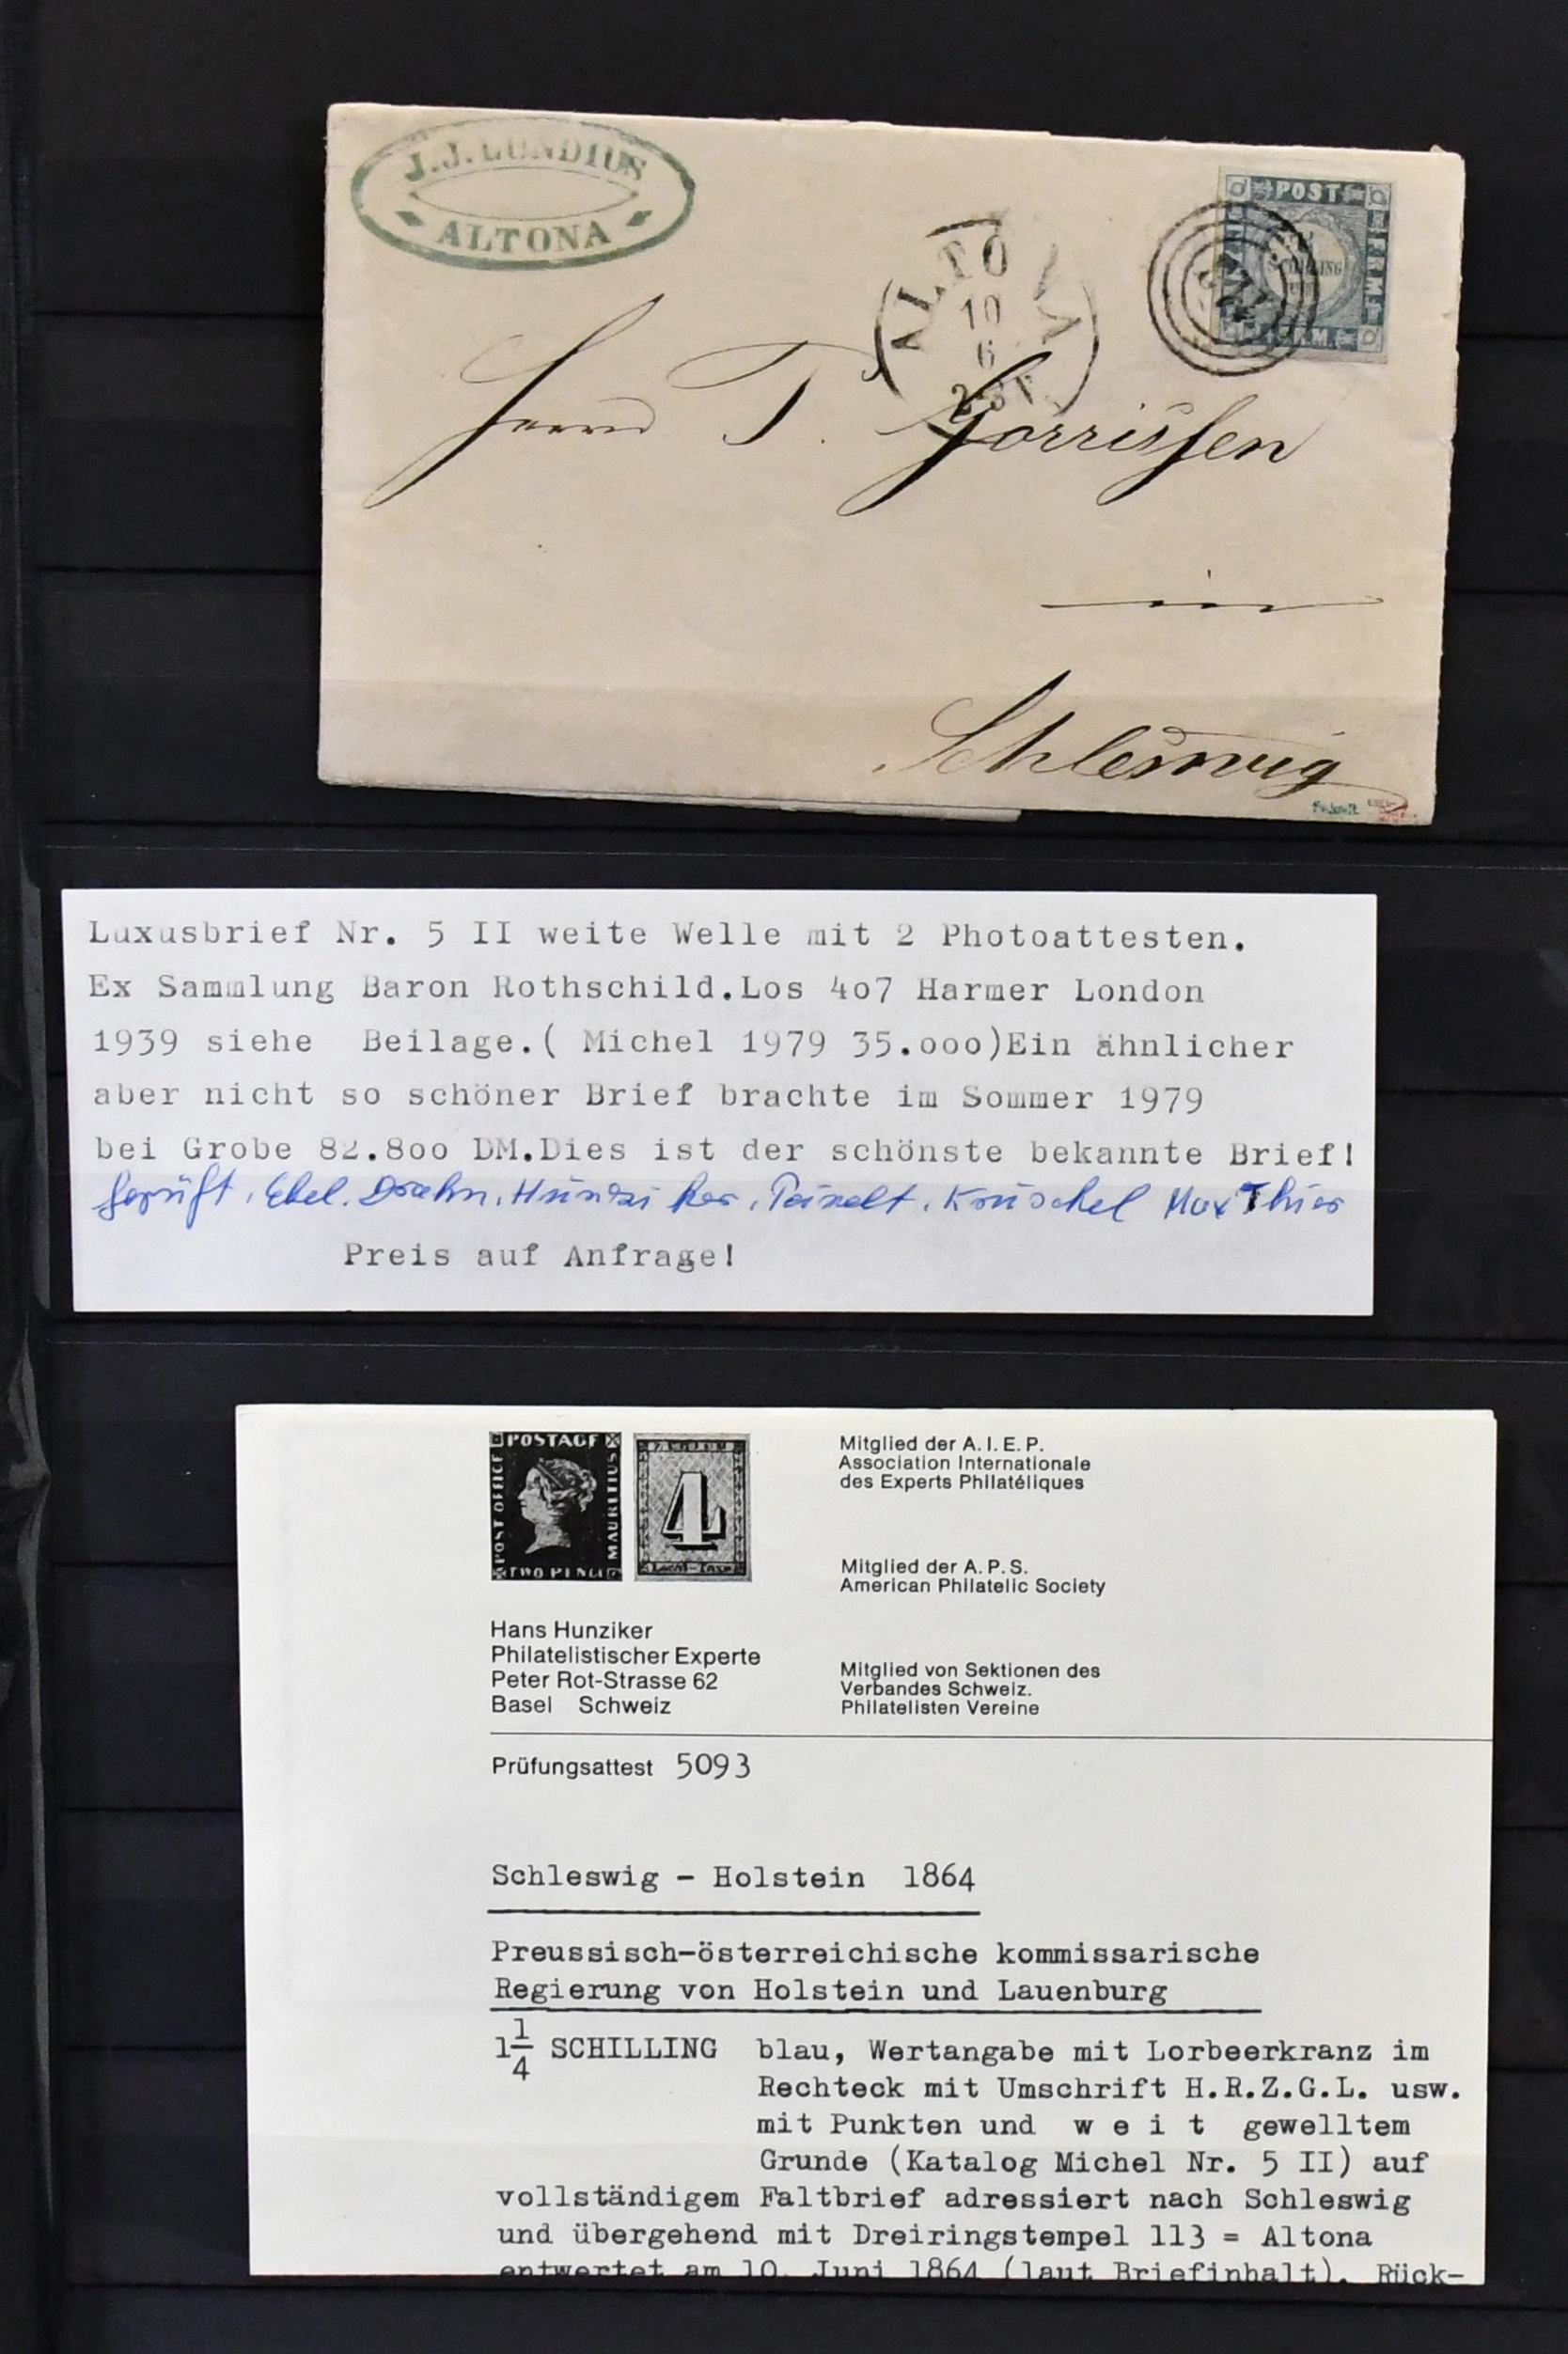 J.J. LUNDIUS
ALTONA
POST
FRM.
SCHILLING
R.M.
ALTONA
10
6
Herrn T. Gorrissen
in
Schleswig
Luxusbrief Nr. 5 II weite Welle mit 2 Photoattesten.
Ex Sammlung Baron Rothschild.Los 4o7 Harmer London
1939 siehe Beilage.( Michel 1979 35.ooo)Ein ähnlicher
aber nicht so schöner Brief brachte im Sommer 1979
bei Grobe 82.8oo DM.Dies ist der schönste bekannte Brief!
geprüft, Ebel. Drahn, Hunziker, Peinelt, Kruschel Max Thier
Preis auf Anfrage!
POSTAGE
POST OFFICE
MAURITIUS
TWO PENCE
4
Local-Taxe
Mitglied der A.I.E.P.
Association Internationale
des Experts Philatéliques
Mitglied der A.P.S.
American Philatelic Society
Hans Hunziker
Philatelistischer Experte
Peter Rot-Strasse 62
Basel Schweiz
Mitglied von Sektionen des
Verbandes Schweiz.
Philatelisten Vereine
Prüfungsattest 5093
Schleswig - Holstein 1864
Preussisch-österreichische kommissarische
Regierung von Holstein und Lauenburg
1 1/4 SCHILLING blau, Wertangabe mit Lorbeerkranz im
Rechteck mit Umschrift H.R.Z.G.L. usw.
mit Punkten und w e i t gewelltem
Grunde (Katalog Michel Nr. 5 II) auf
vollständigem Faltbrief adressiert nach Schleswig
und übergehend mit Dreiringstempel 113 = Altona
entwertet am 10. Juni 1864 (laut Briefinhalt). Rück-